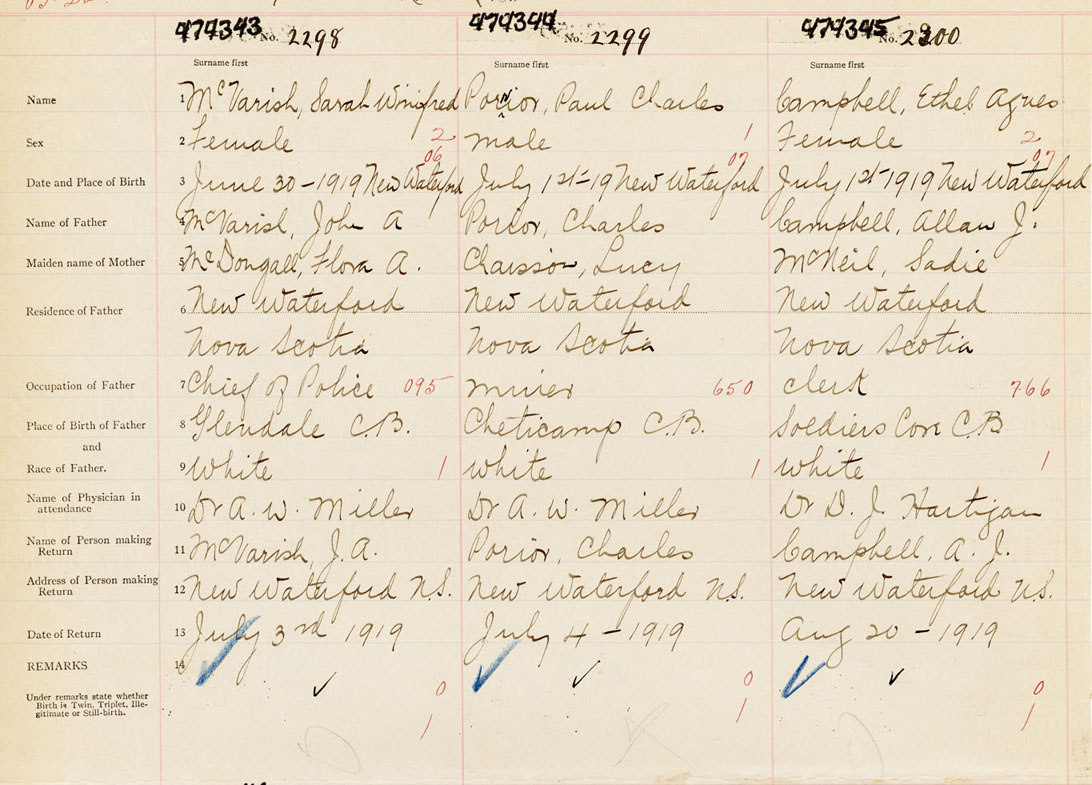 474343 No. 2298 474344 No. 2299 474345 No. 2300
Surname first Surname first Surname first
Name 1 McVarish, Sarah Winifred Poirior, Paul Charles Campbell, Ethel Agnes
Sex 2 Female 2 male 1 Female 2
06 07 07
Date and Place of Birth 3 June 30-1919 New Waterford July 1st-19 New Waterford July 1st-1919 New Waterford
Name of Father 4 McVarish, John A Porior, Charles Campbell, Allan J.
Maiden name of Mother 5 McDougall, Flora A. Chaisson, Lucy McNeil, Sadie
Residence of Father 6 New Waterford New Waterford New Waterford
Nova Scotia Nova Scotia Nova Scotia
Occupation of Father 7 Chief of Police 095 miner 650 clerk 766
Place of Birth of Father 8 Glendale C.B. Cheticamp C.B. Soldiers Cove C.B
and
Race of Father. 9 White 1 white 1 white 1
Name of Physician in
attendance 10 Dr A. W. Miller Dr A. W. Miller Dr D. J. Hartigan
Name of Person making
Return 11 McVarish, J.A. Porior, Charles Campbell, A. J.
Address of Person making
Return 12 New Waterford N.S. New Waterford N.S. New Waterford N.S.
Date of Return 13 July 3rd 1919 July 4-1919 Aug 20-1919
REMARKS 14
0 0 0
Under remarks state whether
Birth is Twin, Triplet, Ille-
gitimate or Still-birth.
1 1 1